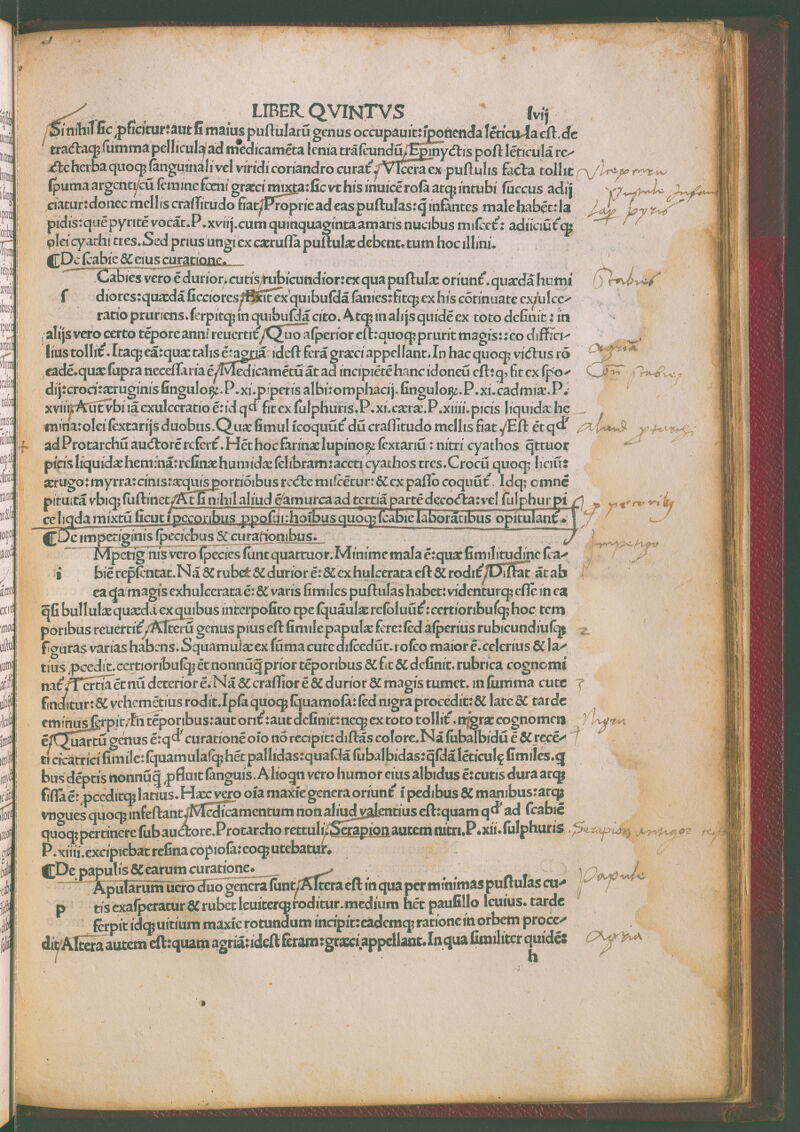 LIBER QVINTVS lvij
Si nihil sic ꝓficitur: aut si maius pustularū genus occupauit: īponenda lēticula est. de
tractaqꝫ summa pellicula ad medicamēta lenia trāseundū/Epinyctis post lēticulā re-
cte herba quoqꝫ sanguinali vel viridi coriandro curat᷑/Vlcera ex pustulis facta tollit
spuma argenti/cū semine fœni græci mixta: sic vt his inuicē rosa atqꝫ intubi succus adij
ciatur: donec mellis crassitudo fiat/Proprie ad eas pustulas: q̄ infantes male habēt: la
pidis: quē pyritē vocāt. P. xviij. cum quinquaginta amaris nucibus miscet᷑: adiiciūt᷑qꝫ
olei cyathi tres. Sed prius ungi ex cærussa pustulæ debent. tum hoc illini.
¶De scabie & eius curatione.
Cabies vero ē durior. cutis rubicundior: ex qua pustulæ oriunt᷑. quædā humi
s diores: quædā sicciores/Exit ex quibusdā sanies: fitqꝫ ex his cōtinuate exulce-
ratio pruriens. serpitqꝫ in quibusdā cito. Atqꝫ in alijs quidē ex toto definit: in
alijs vero certo tēpore anni reuertit᷑/Quo asperior est: quoqꝫ prurit magis: eo diffici-
lius tollit᷑. Itaqꝫ eā: quæ talis ē: agriā: idest ferā græci appellant. In hac quoqꝫ victus rō
eadē. quæ supra necessaria ē/Medicamētū āt ad incipiētē hanc idoneū est: q. fit ex spo-
dij: croci: æruginis singuloꝝ. P. xi. piperis albi: omphacij. singuloꝝ. P. xi. cadmiæ. P.
xviij. Aut vbi iā exulceratio ē: id qď fit ex sulphuris. P. xi. cæræ. P. xiiii. picis liquidæ he
mina: olei sextarijs duobus. Quæ simul īcoquūt᷑ dū crassitudo mellis fiat/Est ēt qď
ad Protarchū auctorē refert᷑. Hēt hoc farinæ lupinoꝝ sextariū: nitri cyathos q̄ttuor
picis liquidæ heminā: resinæ humidæ selibram: aceti cyathos tres. Crocū quoqꝫ liciū:
ærugo: myrra: cinis: æquis portiōibus recte miscētur: & ex passo coquūt᷑. Idqꝫ omnē
pituitā vbiqꝫ sustinet/At si nihil aliud ē/amurca ad tertiā partē decocta: vel sulphur pi
ce liqda mixtū sicut ī pecoribus ꝓposui: hoībus quoqꝫ scabie laborātibus opitulant᷑.
¶De impetiginis speciebus & curationibus.
Mpetiginis vero species sunt quattuor. Minime mala ē: quæ similitudine sca-
i biē rep̄sentat. Nā & rubet & durior ē: & exhulcerata est & rodit/Distat āt ab
ea q̄a magis exhulcerata ē: & varis similes pustulas habet: videnturqꝫ esse in ea
q̄si bullulæ quædā ex quibus interposito tpe sq̄uāulæ resoluūt᷑: certioribusqꝫ hoc tem
poribus reuertit᷑/Alterū genus pius est simile papulæ fere: sed asperius rubicundiusqꝫ
figuras varias habens. Squamulæ ex sūma cute discedūt. rosio maior ē. celerius & la-
tius ꝓcedit. certioribusqꝫ ēt nonnūq̄ prior tēporibus & fit & definit. rubrica cognomi
nat᷑/Tertia ēt nū deterior ē. Nā & crassior ē & durior & magis tumet. in summa cute
finditur: & vehemētius rodit. Ipsa quoqꝫ squamosa: sed nigra procedit: & late & tarde
eminus serpit/In tēporibus: aut orit᷑: aut definit: necqꝫ ex toto tollit᷑. nigræ cognomen
ē/Quartū genus ē: qď curationē oīo nō recipit: distās colore. Nā subalbidū ē & recē-
ti cicatrici simile: squamulasqꝫ hēt pallidas: quasdā subalbidas: q̄sdā lēticulę similes. q
bus dēptis nonnūq̄ ꝓfluit sanguis. Alioqn vero humor eius albidus ē: cutis dura atqꝫ
fissa ē: ꝓceditqꝫ latius. Hæc vero oīa maxīe genera oriunt᷑ ī pedibus & manibus: atqꝫ
vngues quoqꝫ infestant/Medicamentum non aliud valentius est: quam qď ad scabiē
quoqꝫ pertinere sub auctore. Protarcho rettuli/Serapion autem nitri. P. xii. sulphuris
P. xiiii. excipiebat resina copiosa: eoqꝫ utebatur.
¶De papulis & earum curatione.
Apularum uero duo genera sunt/Altera est in qua per minimas pustulas cu-
p tis exasperatur & rubet leuiterqꝫ roditur. medium hēt pausillo leuius. tarde
serpit idqꝫ uitium maxīe rotundum incipit: eademqꝫ ratione in orbem proce-
dit/Altera autem est: quam agriā: idest feram: græci appellant. In qua similiter quidē:
h
Scabies
Agria
Impetigo
2
3
Nigra
Papule
Agria